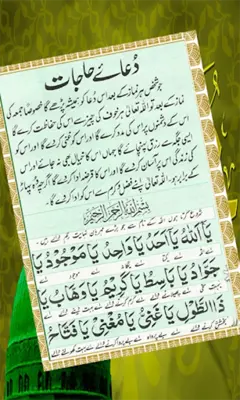 دُعائے حاجات
جو شخص ہر نماز کے بعد اس دُعا کو ہمیشہ پڑھے گا خصوصاً جمعہ کی
نماز کے بعد تو اللہ تعالیٰ ہر خوف کی چیز سے اس کی حفاظت کرے گا
اس کے دشمنوں پر اس کی مدد کرے گا اور اس کو غنی کرے گا اور اس کو
ایسی جگہ سے رزق پہنچائے گا جہاں اس کا خیال بھی نہ جائے اور اس
کی زندگی اس پر آسان کرے گا اور اس کا قرضہ ادا کر دے گا اگرچہ پہاڑ
کے برابر ہو۔ اللہ تعالیٰ اپنے فضل و کرم سے اس کو ادا کر دے گا۔
بِسْمِ اللهِ الرَّحْمٰنِ الرَّحِيْمِ
يَا اَللهُ يَا اَحَدُ يَا وَاحِدُ يَا مَوْجُوْدُ يَا
جَوَادُ يَا بَاسِطُ يَا كَرِيْمُ يَا وَهَّابُ يَا
ذَا الطَّوْلِ يَا غَنِيُّ يَا مُغْنِيُ يَا فَتَّاحُ